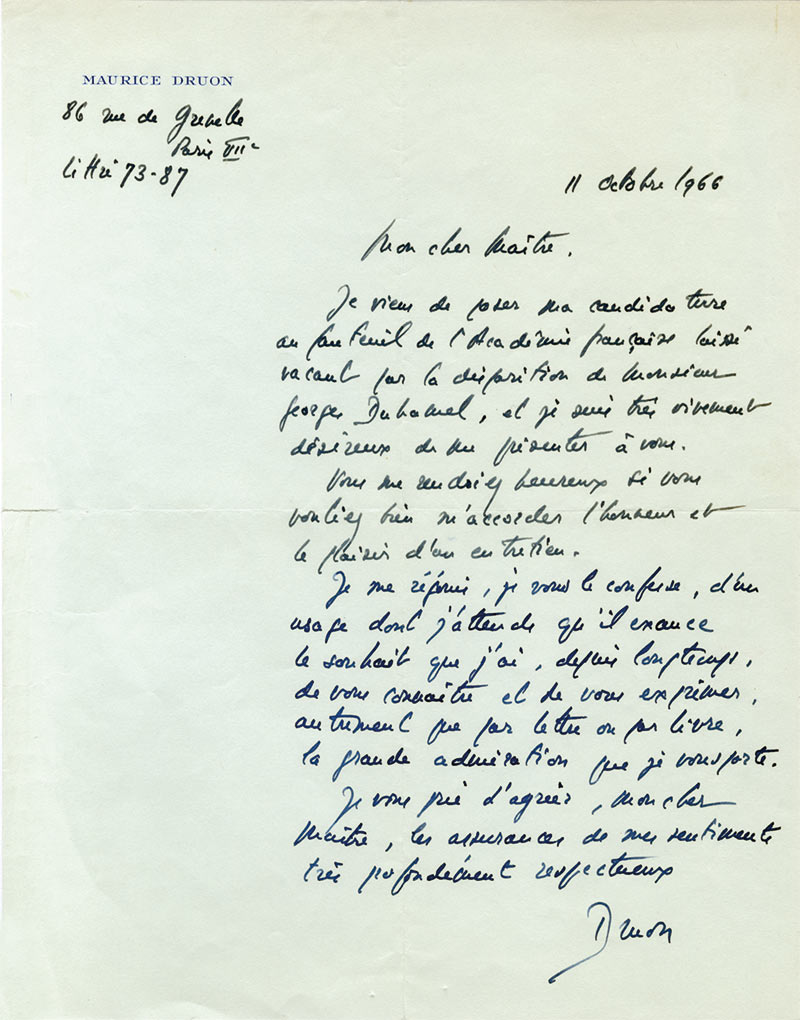 MAURICE DRUON
86 rue de Grenelle
Paris VIIe
Littré 73-87
11 octobre 1966
Mon cher Maître.
Je viens de poser ma candidature
au fauteuil de l'Académie française laissé
vacant par la disparition de Monsieur
Georges Duhamel, et je suis très vivement
désireux de me présenter à vous.
Vous me rendriez heureux si vous
vouliez bien m'accorder l'honneur et
le plaisir d'un entretien.
Je me réjouis, je vous le confesse, d'un
usage dont j'attends qu'il exauce
le souhait que j'ai, depuis longtemps,
de vous connaître et de vous exprimer,
autrement que par lettre ou par livre,
la grande admiration que je vous porte.
Je vous prie d'agréer, mon cher
Maître, les assurances de mes sentiments
très profondément respectueux
Druon